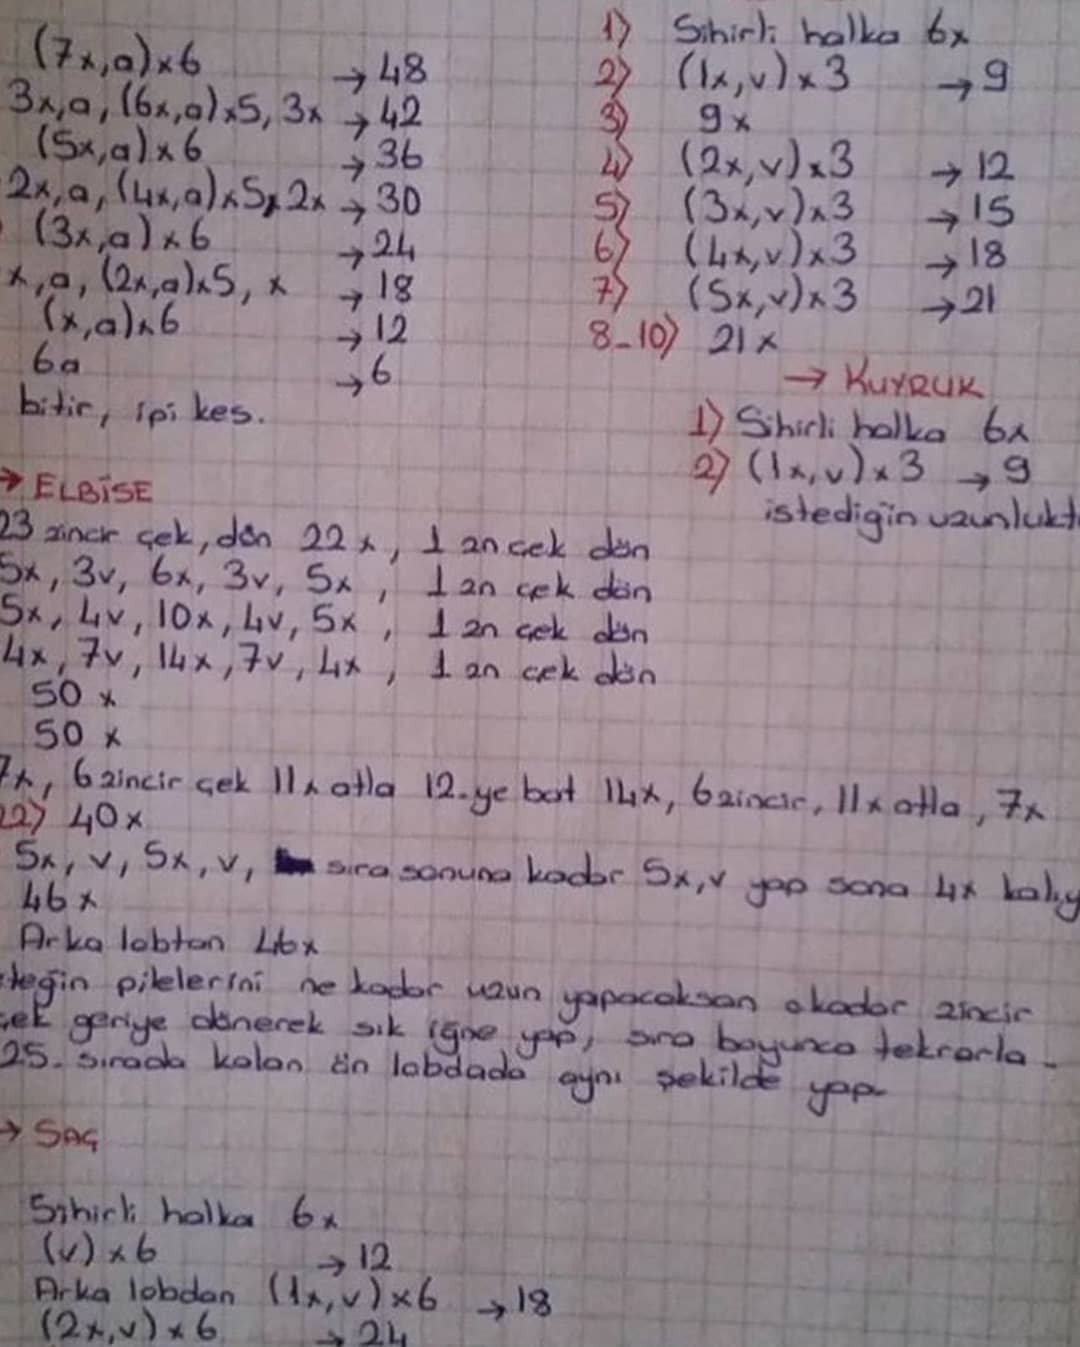 (7x,a)x6 → 48
3x,a,(6x,a)x5,3x → 42
(5x,a)x6 → 36
2x,a,(4x,a)x5,2x → 30
(3x,a)x6 → 24
x,a,(2x,a)x5, x → 18
(x,a)x6 → 12
6a → 6
bitir, ipi kes.
1) Sihirli halka 6x
2) (1x,v)x3 → 9
3) 9x
4) (2x,v)x3 → 12
5) (3x,v)x3 → 15
6) (4x,v)x3 → 18
7) (5x,v)x3 → 21
8-10) 21x
→ KUYRUK
1) Sihirli halka 6x
2) (1x,v)x3 → 9
istediğin uzunlukt
→ ELBİSE
23 zincir çek, dön 22x, 1 zn çek dön
5x, 3v, 6x, 3v, 5x, 1 zn çek dön
5x, 4v, 10x, 4v, 5x, 1 zn çek dön
4x, 7v, 14x, 7v, 4x, 1 zn çek dön
50 x
50 x
7x, 6 zincir çek 11x atla 12.ye bat 14x, 6 zincir, 11x atla, 7x
22) 40x
5x, v, 5x, v, sıra sonuna kadar 5x,v yap sona 4x kalıy
46 x
Arka lobtan 46x
teğin pilelerini ne kadar uzun yapacaksan o kadar zincir
çek geriye dönerek sık iğne yap, sıra boyunca tekrarla.
25. sırada kalan ön lobdada aynı şekilde yap
→ SAÇ
Sihirli halka 6x
(v)x6 → 12
Arka lobdan (1x,v)x6 → 18
(2x,v)x6 → 24